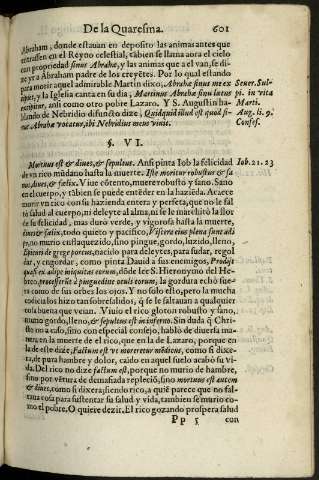 De la Quaresma. 601
Abraham, donde estauan en deposito las animas antes que
entrassen en el Reyno celestial, tãbien se llama aora el cielo
con propriedad sinus Abrahæ, y las animas que a el van, se di-
ze yr a Abraham padre de los creyẽtes. Por lo qual estando
para morir aquel admirable Martin dixo, Abrahæ sinu me ex
cipiet, y la Iglesia canta en su dia, Martinus Abrahæ sinu lætus
excipitur, ansi como otro pobre Lazaro. Y S. Augustin ha-
blando de Nebridio difuncto dize, Quidquid illud est quod si-
nus Abrahæ vocatur, ibi Nebridius meus viuit.
Seuer. Sul-
pi. in vita
Marti.
Aug. li. 9.
Confes.
§. VI.
Mortuus est & diues, & sepultus. Ansi pinta Iob la felicidad
de vn rico mũdano hasta la muerte. Iste moritur robustus & sa
nus, diues, & fœlix. Viue cõtento, muere robusto y sano. Sano
en el cuerpo, y tãbien se puede entẽder en la haziẽda. Acaece
morir vn rico con su hazienda entera y perfeta, que no le fal
tó salud al cuerpo, ni deleyte al alma, ni se le marchitó la flor
de su felicidad, mas duró verde, y vigorosa hasta la muerte,
diues & fœlix, todo quieto y pacifico, Viscera eius plena sunt adi
pe, no murio enflaquezido, sino pingue, gordo, luzido, lleno,
Epicuri de grege porcus, nacido para deleytes, para sudar, regol
dar, y engordar, como pinta Dauid a sus enemigos, Prodijt
quasi ex adipe iniquitas eorum, dõde lee S. Hieronymo del He-
breo, processerũt à pinguedine oculi eorum, la gordura echó fue-
ra como de sus orbes los ojos. Y no solo esso, pero la mucha
codicia los hizo tan sobresalidos, q̃ se le saltauan a qualquier
cosa buena que veían. Viuio el rico gloton robusto y sano,
murio gordo, lleno, & sepultus est in inferno. Sin duda q̃ Chri-
sto no a caso, sino con especial consejo, habló de diuersa ma-
nera en la muerte de el rico, que en la de Lazaro, porque en
la de este dize, Factum est vt moreretur mẽdicus, como si dixe-
ra, de pura hambre y dolor, caido en aquel suelo acabó su vi-
da. Del rico no dize factum est, porque no murio de hambre,
sino por vẽtura de demasiada replecio, sino mortuus est autem
& diues, como si dixera; siendo rico, a quiẽ parece que no fal-
taua cosa para sustentar su salud y vida, tambien se murio co-
mo el pobre. O quiere dezir, El rico gozando prospera salud
Iob. 21. 23
Pp 5 con